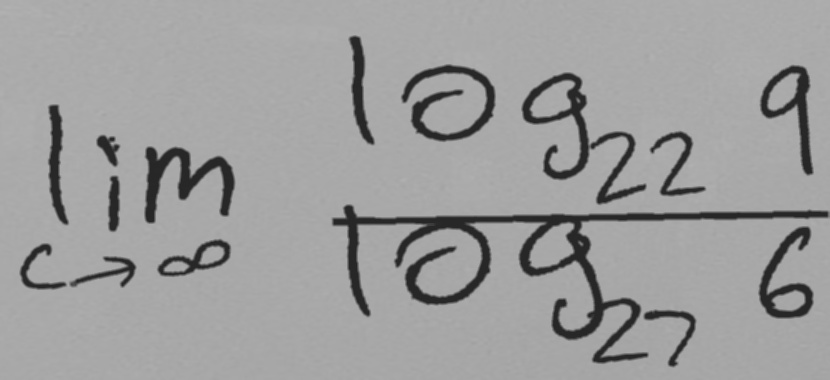 lim c→∞ log₂₂ 9 / log₂₇ 6